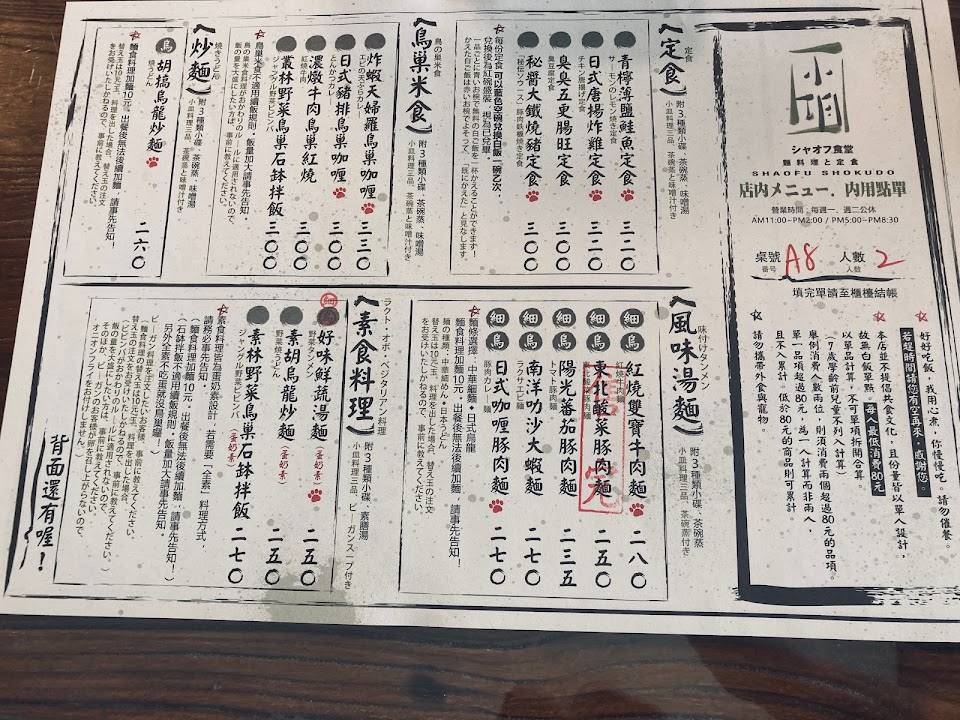 シャオフ食堂
麵料理と定食
SHAOFU SHOKUDO
店内メニュー．內用點單
營業時間：每週一、週二公休
AM11:00~PM2:00 / PM5:00~PM8:30
桌號 A8 人數 2
番号 人数
填完單請至櫃檯結帳
好好吃飯，我用心煮，你慢慢吃。請勿催餐。
若趕時間請您有空再來，感謝您。
本店並不提倡共食文化，且份量皆以單人設計，
故無白飯單點。每人最低消費80元
以單品計算，不可單項拆開合算。
(7歲學齡前兒童不列入計算)
舉例消費人數兩位，則消費兩個超過80元的品項。
單一品項超過80元，為一人計算而非兩人，
且不入累計，低於80元的商品則可累計
請勿攜帶外食與寵物。
《定食》
定食
附3種類小碟、茶碗蒸、味噌湯
小皿料理三品、茶碗蒸と味噌汁付き
青檸薄鹽鮭魚定食 三二〇
サーモンのレモン焼き定食
日式唐揚炸雞定食 三二〇
チキン唐揚げ定食
臭臭五更腸旺定食 三〇〇
臭豆腐定食
秘醬大鐵燒豬定食 三〇〇
「秘伝ソウース」豚肉鉄板焼き定食
每份定食可以藍色空碗兌換白飯一碗乙次，
兌換後為紅碗盛裝，視為已兌畢。
《鳥巢米食》
鳥の巣米食
附3種類小碟、茶碗蒸、味噌湯
小皿料理三品、茶碗蒸と味噌汁付き
炸蝦天婦羅鳥巢咖喱 三三〇
エビの天ぷらカレー
日式豬排鳥巢咖喱 三〇〇
とんかつカレー
濃燉牛肉鳥巢紅燒 三〇〇
紅燒牛肉
叢林野菜鳥巢石鉢拌飯 三〇〇
ジャングル野菜ビビンバ
鳥巢米食不適用續飯規則，飯量加大請事先告知。
《炒麵》
焼きうどん
附3種類小碟、茶碗蒸、味噌湯
小皿料理三品、茶碗蒸と味噌汁付き
烏 胡搞烏龍炒麵 二六〇
焼うどん
麵食料理加麵10元，出餐後無法後續加麵，請事先告知！
替え玉は10元/玉、料理を出した場合、替え玉の注文
をお受けいたしかねるので、事前に教えてください。
《風味湯麵》
味付けタンメン
附3種類小碟、茶碗蒸
小皿料理三品、茶碗蒸き付き
細 烏 紅燒雙寶牛肉麵 二八〇
紅燒牛肉麵
細 烏 東北酸菜豚肉麵 二五〇
售完
細 烏 陽光蕃茄豚肉麵 二三五
トマト豚肉麵
細 烏 南洋叻沙大蝦麵 二七〇
ラクサエビ麵
細 烏 日式咖喱豚肉麵 二七〇
豚肉カレー麵
麵條選擇：中華細麵・日式烏龍
麵食料理加麵10元，出餐後無法後續加麵，請事先告知！
麵の種類：中華細麵・日本うどん
替え玉は10元/玉、料理を出した場合、替え玉の注文
をお受けいたしかねるので、事前に教えてください。
《素食料理》
ラクト・オボ・ベジタリアン料理
附3種類小碟、素膳湯
小皿料理三品、ビーガンスープ付き
細 烏 好味鮮蔬湯麵(蛋奶素) 二五〇
野菜タンメン
素胡烏龍炒麵(蛋奶素) 二五〇
野菜焼うどん
素林野菜鳥巢石鉢拌飯(蛋奶素) 二七〇
ジャングル野菜ビビンバ
素食料理皆為蛋奶素設計，若需要「全素」料理方式，
請務必事先告知。
(麵食料理加麵10元，出餐後無法後續加麵，請事先告知！
(石鉢拌飯不適用續飯規則，飯量加大請事先告知。)
另外全素不吃蛋就沒鳥巢囉！)
背面還有喔！